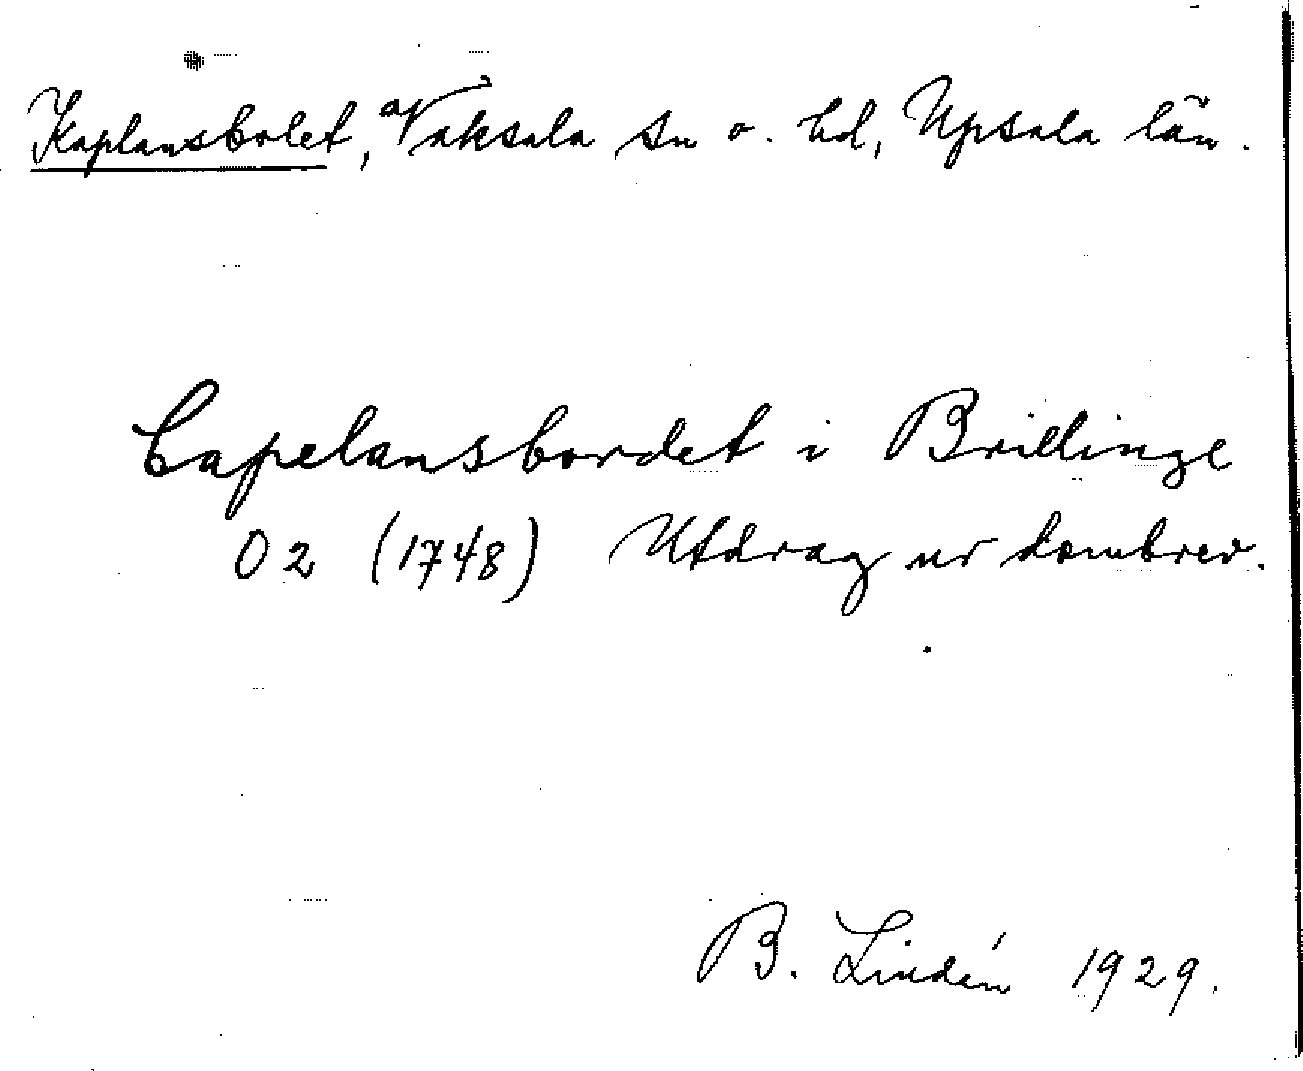 Kaplansbolet, Vaksala sn o. hd, Upsala län.
Capelansbordet i Brillinge
02 (1748) Utdrag ur dombrev.
B. Lindén 1929.